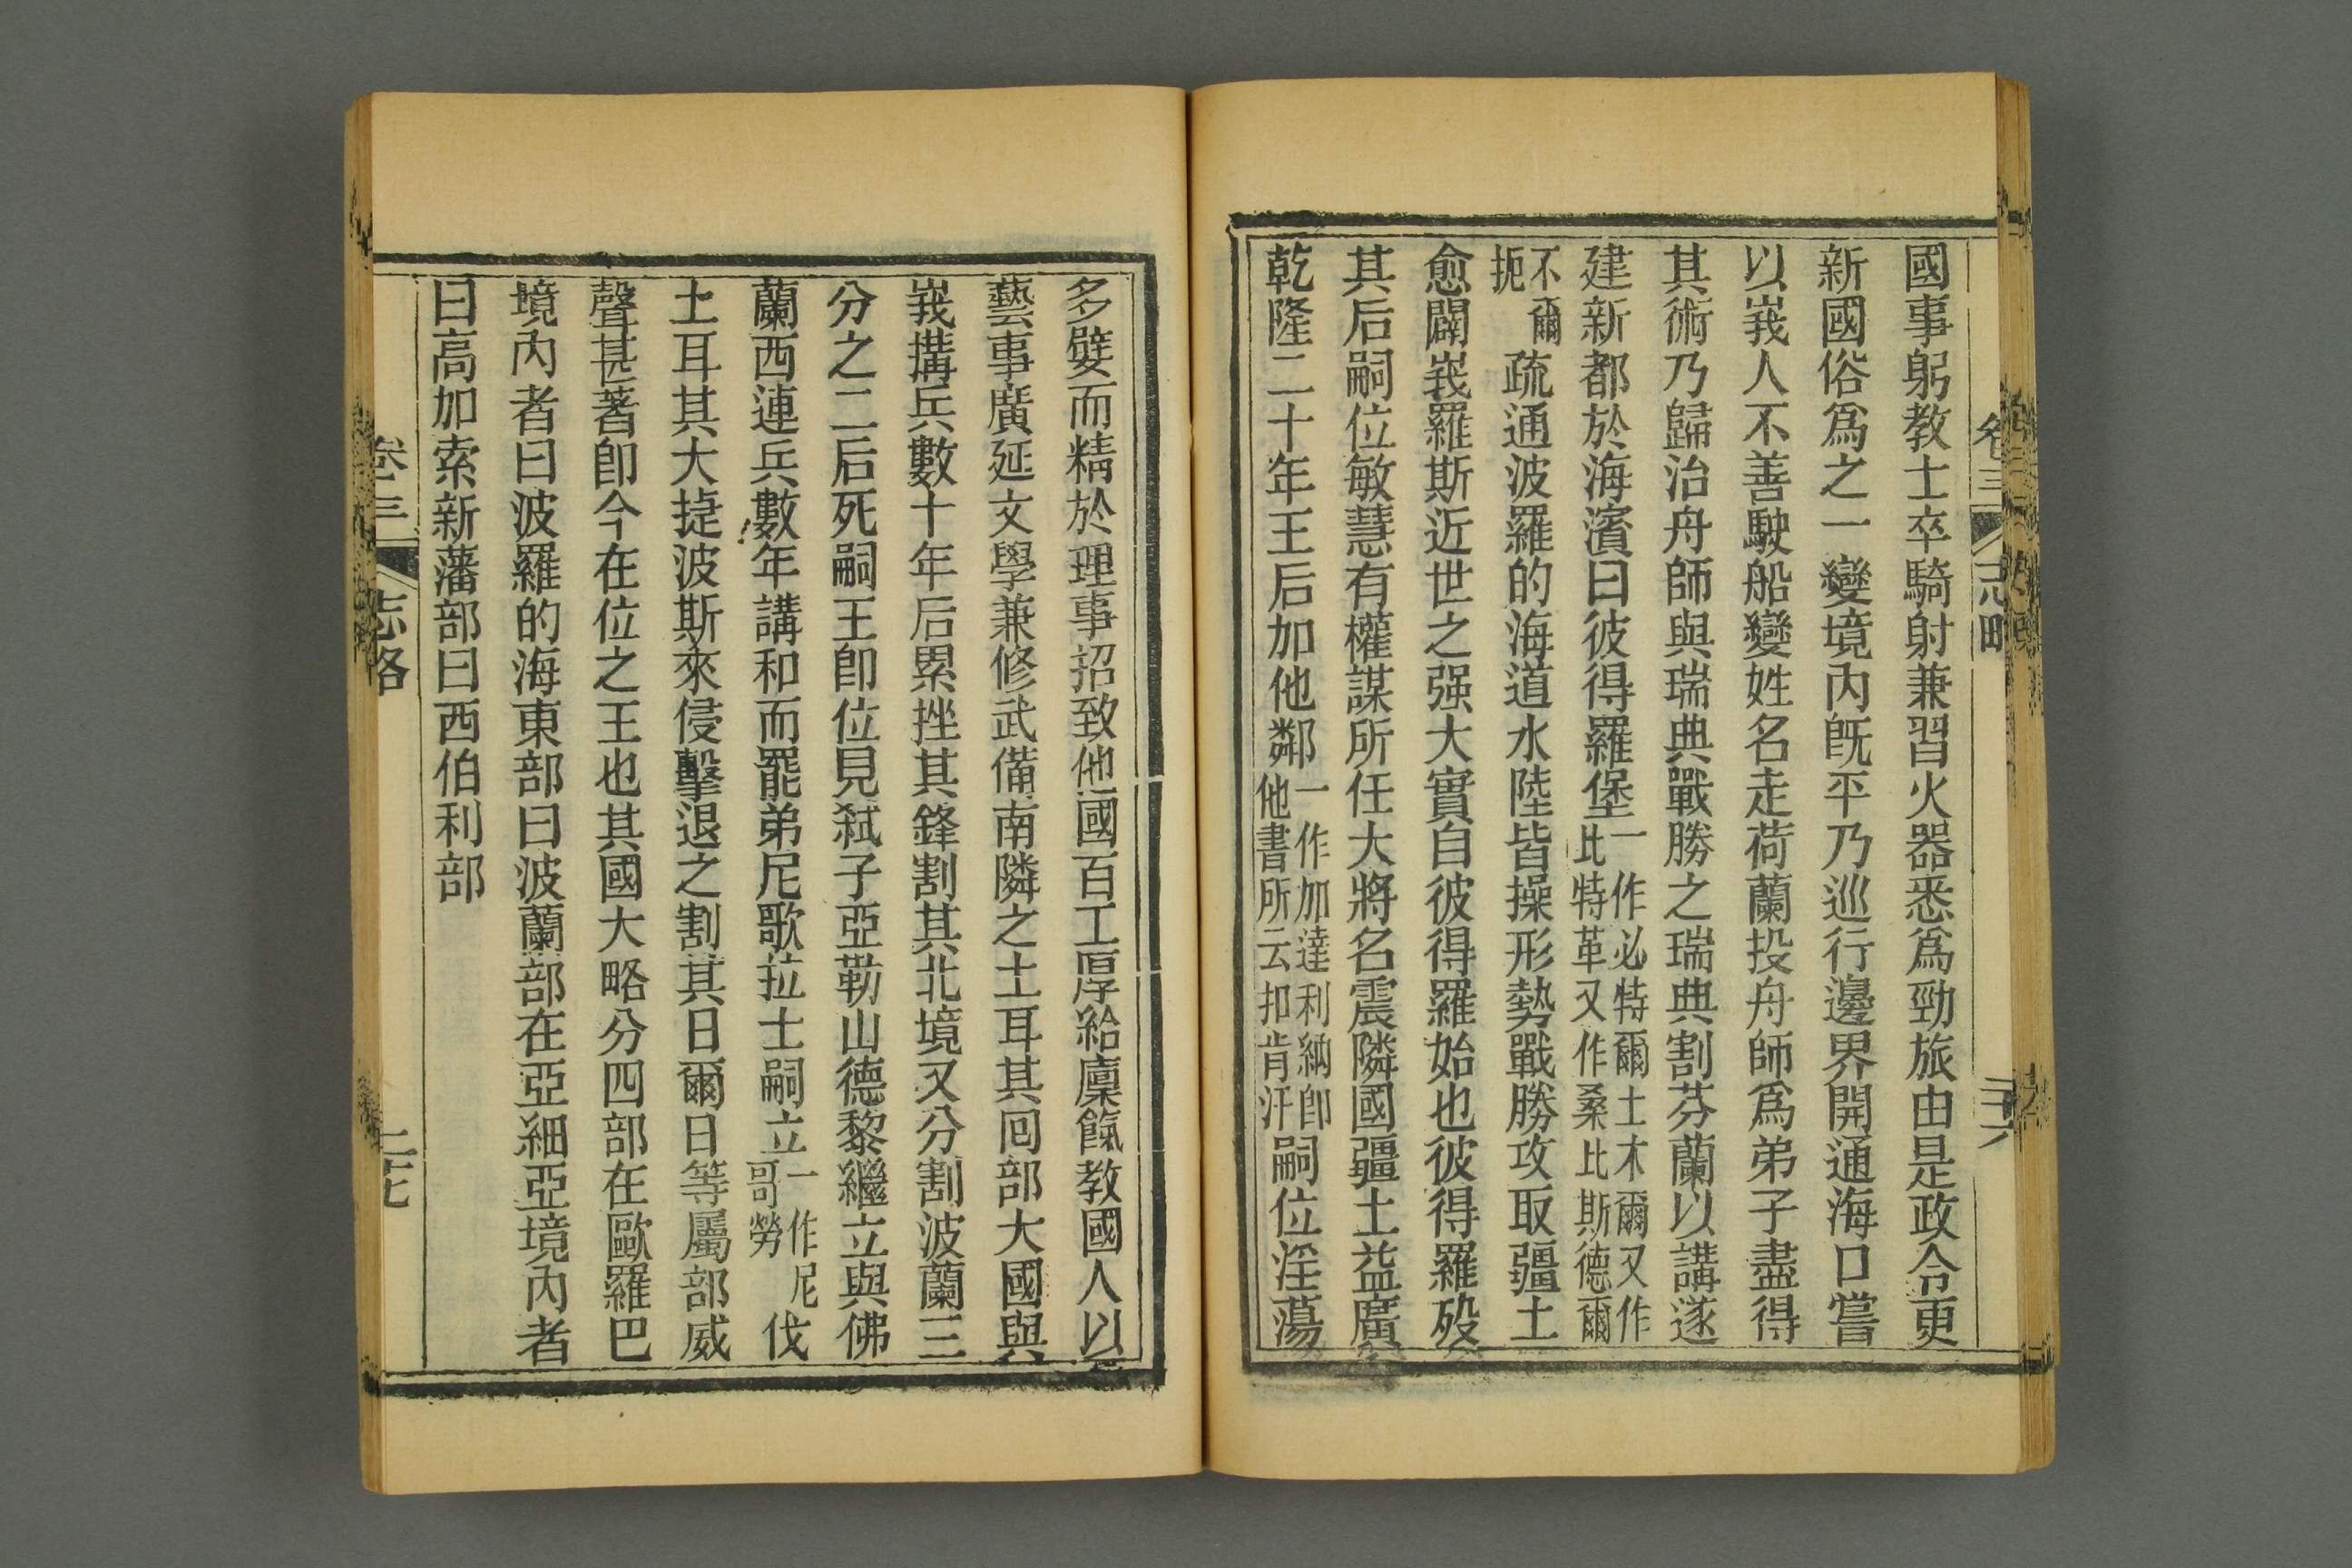 國事躬教士卒騎射兼習火器悉爲勁旅由是政令更
新國俗爲之一變境內旣平乃巡行邊界開通海口嘗
以峩人不善駛船變姓名走荷蘭投舟師爲弟子盡得
其術乃歸治舟師與瑞典戰勝之瑞典割芬蘭以講遂
建新都於海濱曰彼得羅堡一作必特爾土木爾又作比特革又作桑比斯德爾
不爾扼疏通波羅的海道水陸皆操形勢戰勝攻取疆土
愈闢峩羅斯近世之强大實自彼得羅始也彼得羅殁
其后嗣位敏慧有權謀所任大將名震隣國疆土益廣
乾隆二十年王后加他鄰一作加達利納卽他書所云扣肯汗嗣位淫蕩
多嬖而精於理事招致他國百工厚給廩餼教國人以
藝事廣延文學兼修武備南隣之土耳其回部大國與
峩搆兵數十年后累挫其鋒割其北境又分割波蘭三
分之二后死嗣王卽位見弑子亞勒山德黎繼立與佛
蘭西連兵數年講和而罷弟尼歌拉士嗣立一作尼哥勞伐
土耳其大捷波斯來侵擊退之割其日爾日等屬部威
聲甚著卽今在位之王也其國大略分四部在歐羅巴
境內者曰波羅的海東部曰波蘭部在亞細亞境內者
曰高加索新藩部曰西伯利部
卷三
志略